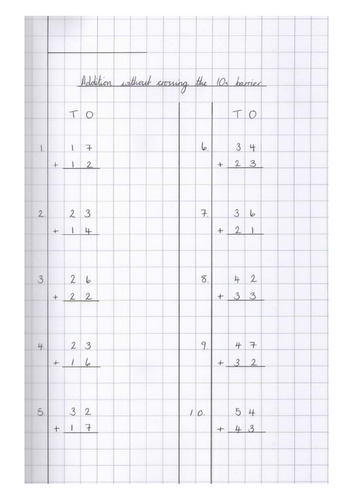 Addition without crossing the 10s barrier
T O
1. 1 7
+ 1 2
2. 2 3
+ 1 4
3. 2 6
+ 2 2
4. 2 3
+ 1 6
5. 3 2
+ 1 7
T O
6. 3 4
+ 2 3
7. 3 6
+ 2 1
8. 4 2
+ 3 3
9. 4 7
+ 3 2
10. 5 4
+ 4 3